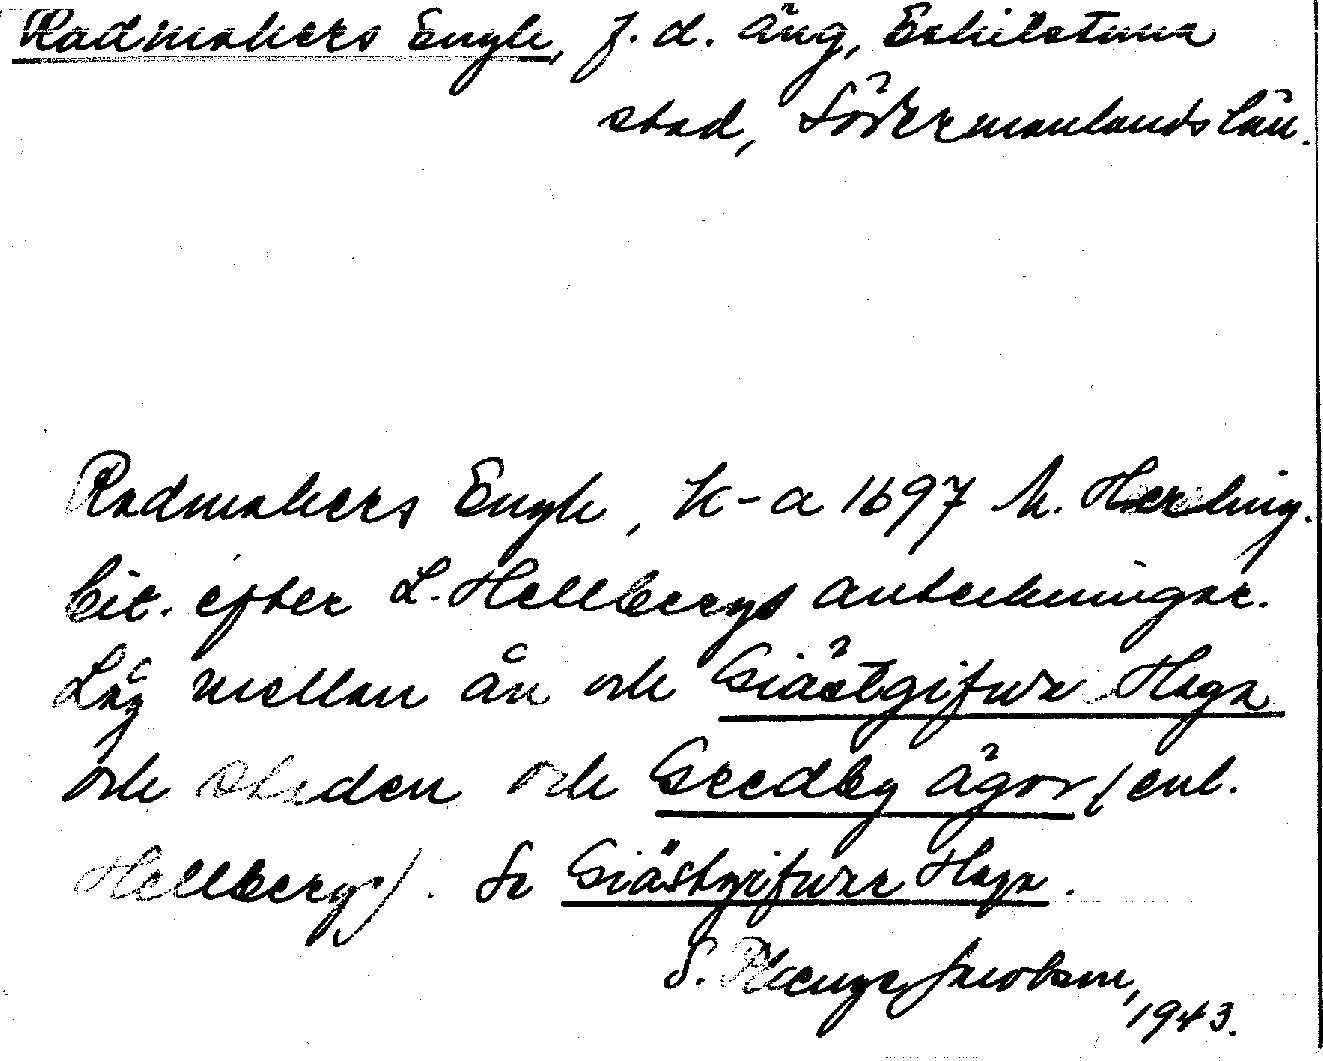 Radmakers Engh, f. d. äng, Eskilstuna
stad, Södermanlands län.
Radmakers Engh, K-a 1697 h. Hærling.
Cit. efter L. Hellbergs anteckningar.
Låg mellan ån och Giästgifware Haga
och Staden och Gredby ägor (enl.
Hellberg). Se Giästgifware Haga.
S. Jacobson, 1943.